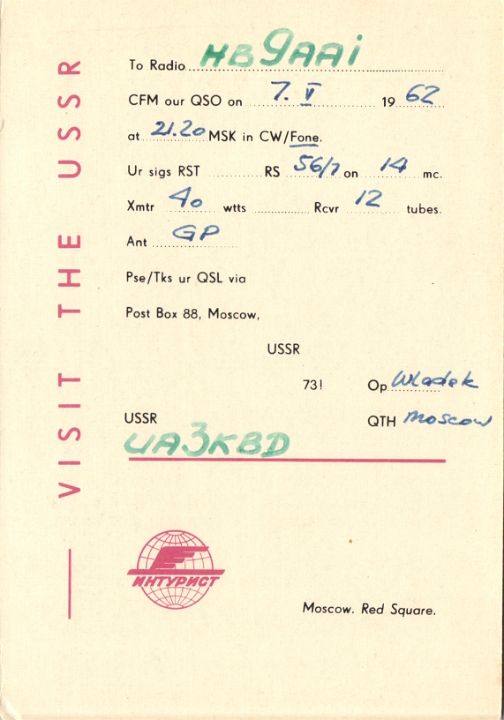 VISIT THE USSR
To Radio HB9AAi
CFM our QSO on 7. V 1962
at 21.20 MSK in CW/Fone.
Ur sigs RST RS 56/7 on 14 mc.
Xmtr 40 wtts Rcvr 12 tubes.
Ant GP
Pse/Tks ur QSL via
Post Box 88, Moscow,
USSR
73! Op Wladek
USSR QTH Moscow
UA3KBD
ИНТУРИСТ
Moscow. Red Square.